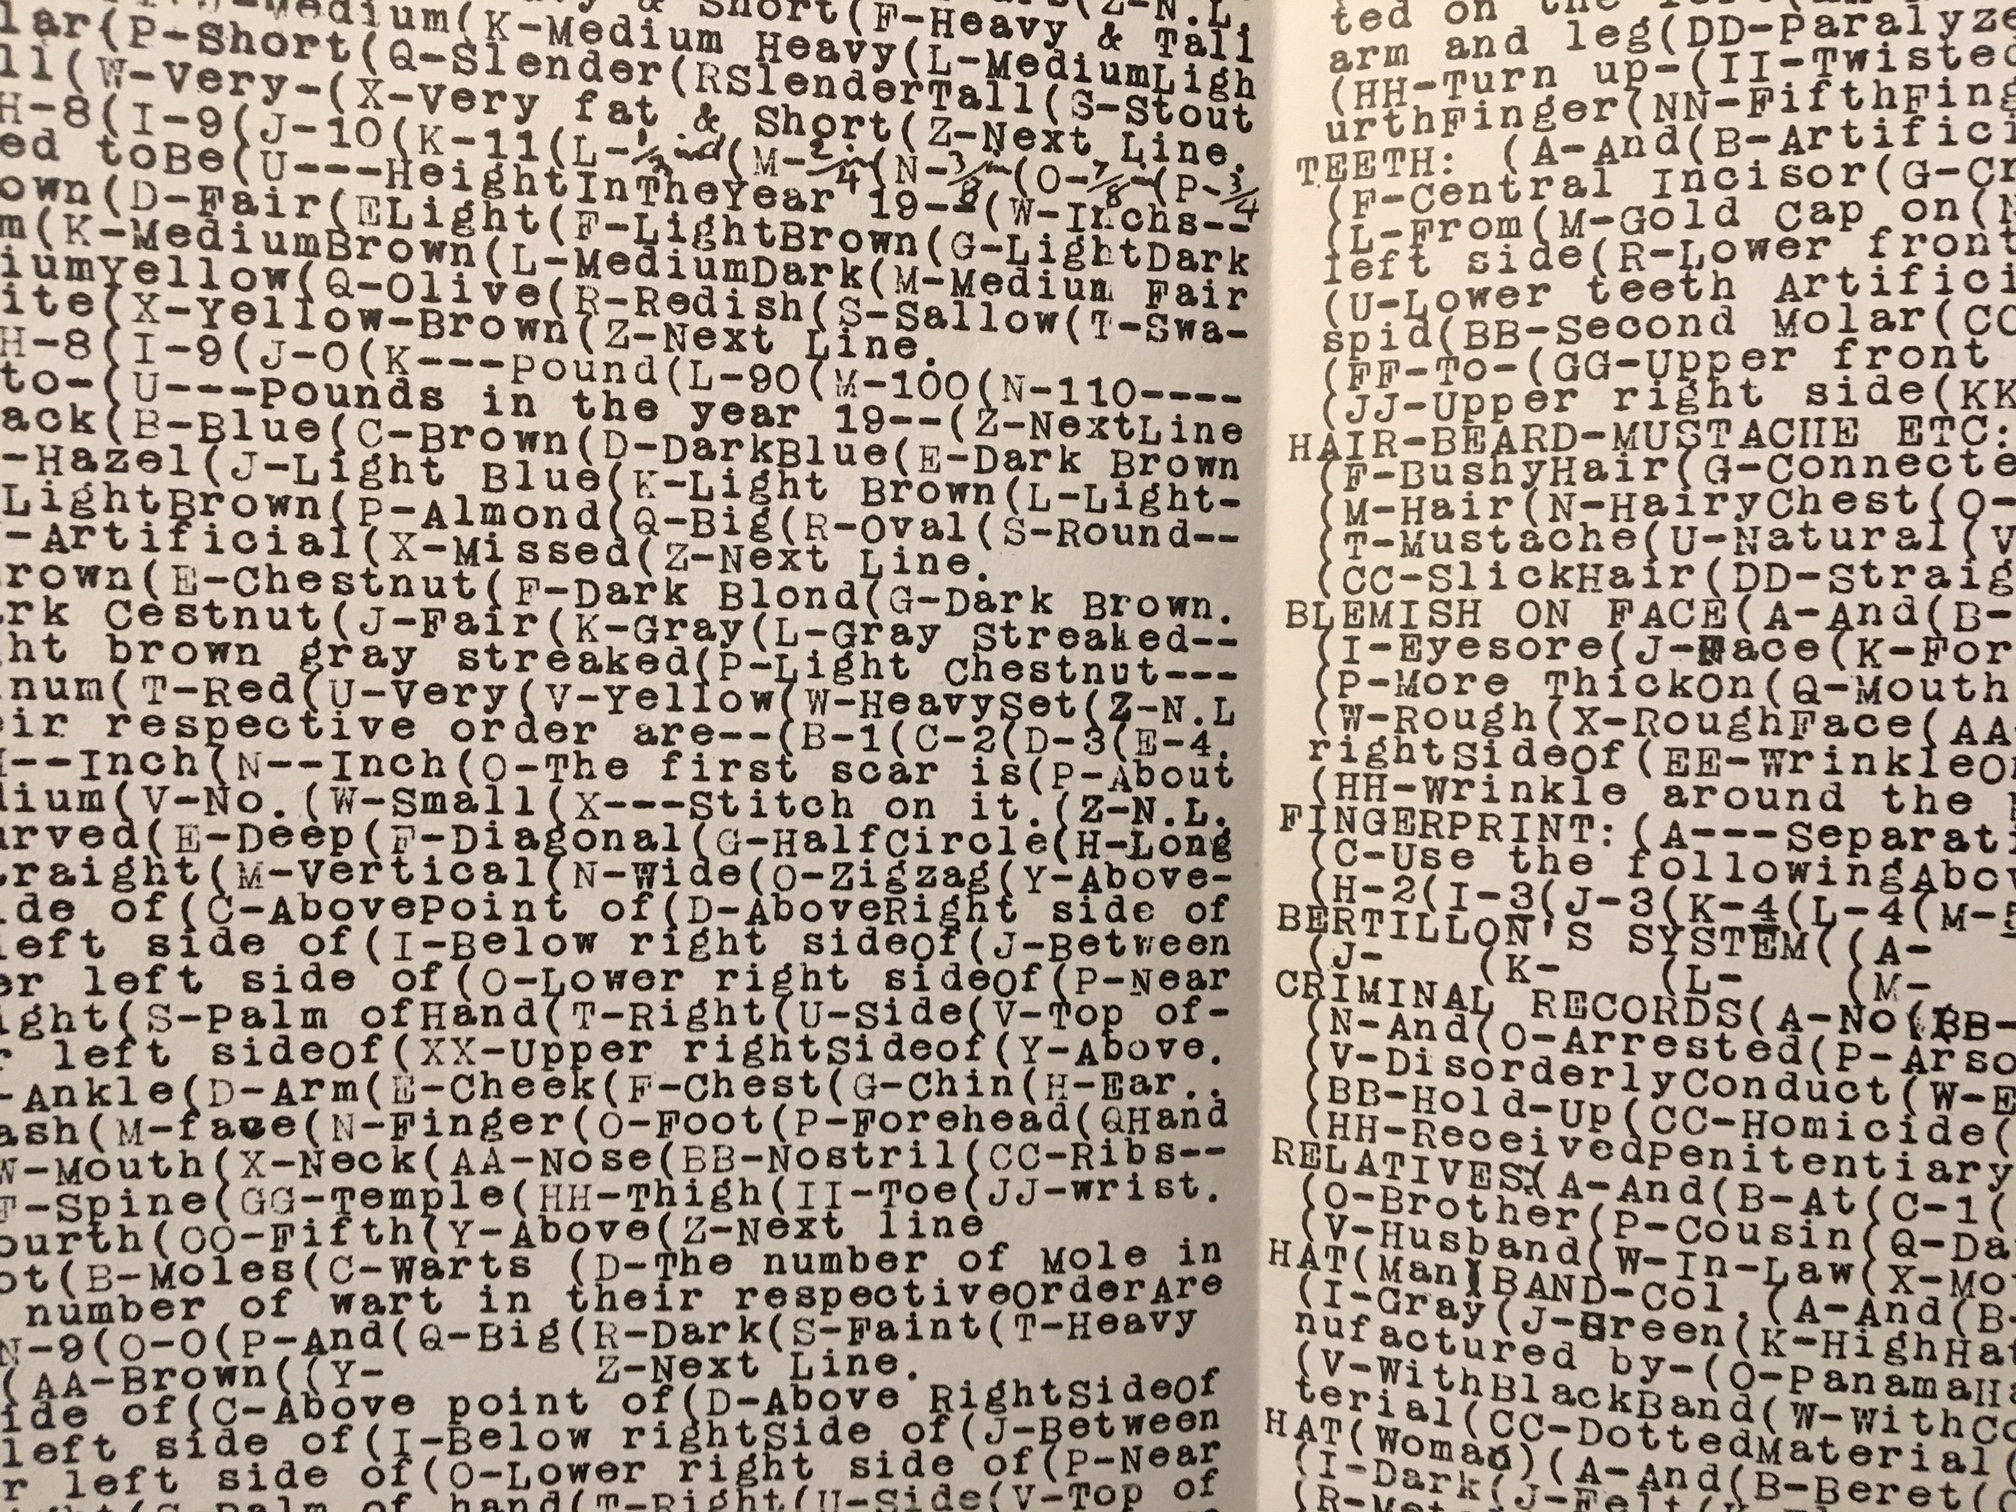 & Short(F-Heavy & Tall
Medium(K-Medium Heavy(L-MediumLigh
lar(P-Short(Q-Slender(RSlenderTall(S-Stout
ll(W-Very-(X-Very fat & Short(Z-Next Line.
H-8(I-9(J-10(K-11(L-
ed toBe(U---HeightInTheYear 19--(W-Inchs--
own(D-Fair(ELight(F-LightBrown(G-LightDark
m(K-MediumBrown(L-MediumDark(M-Medium Fair
iumYellow(Q-Olive(R-Redish(S-Sallow(T-Swa-
ite(X-Yellow-Brown(Z-Next Line.
H-8(I-9(J-0(K---Pound(L-90(M-100(N-110----
to-(U---Pounds in the year 19--(Z-NextLine
ack(B-Blue(C-Brown(D-DarkBlue(E-Dark Brown
-Hazel(J-Light Blue(K-Light Brown(L-Light-
LightBrown(P-Almond(Q-Big(R-Oval(S-Round--
-Artificial(X-Missed(Z-Next Line.
rown(E-Chestnut(F-Dark Blond(G-Dark Brown.
rk Cestnut(J-Fair(K-Gray(L-Gray Streaked--
ht brown gray streaked(P-Light Chestnut---
num(T-Red(U-Very(V-Yellow(W-HeavySet(Z-N.L
eir respective order are--(B-1(C-2(D-3(E-4.
--Inch(N--Inch(O-The first scar is(P-About
ium(V-No.(W-Small(X---Stitch on it.(Z-N.L.
urved(E-Deep(F-Diagonal(G-HalfCircle(H-Long
raight(M-Vertical(N-Wide(O-Zigzag(Y-Above-
ide of(C-AbovePoint of(D-AboveRight side of
left side of(I-Below right sideOf(J-Between
er left side of(O-Lower right sideOf(P-Near
ight(S-Palm ofHand(T-Right(U-Side(V-Top of-
r left sideOf(XX-Upper rightSideof(Y-Above.
-Ankle(D-Arm(E-Cheek(F-Chest(G-Chin(H-Ear..
ash(M-face(N-Finger(O-Foot(P-Forehead(QHand
W-Mouth(X-Neck(AA-Nose(BB-Nostril(CC-Ribs--
F-Spine(GG-Temple(HH-Thigh(II-Toe(JJ-wrist.
ourth(OO-Fifth(Y-Above(Z-Next line
ot(B-Moles(C-Warts (D-The number of Mole in
number of wart in their respectiveOrderAre
N-9(O-0(P-And(Q-Big(R-Dark(S-Faint(T-Heavy
(AA-Brown((Y- Z-Next Line.
ide of(C-Above point of(D-Above RightSideOf
left side of(I-Below rightSide of(J-Between
r left side of(O-Lower right side of(P-Near
ight(S-Palm of hand(T-Right(U-Side(V-Top of
ted on the
arm and leg(DD-Paralyze
(HH-Turn up-(II-Twisted
urthFinger(NN-FifthFing
TEETH: (A-And(B-Artifici
(F-Central Incisor(G-Cr
(L-From(M-Gold Cap on(N
left side(R-Lower front
(U-Lower teeth Artifici
spid(BB-Second Molar(CC
(FF-To-(GG-Upper front
(JJ-Upper right side(KK
HAIR-BEARD-MUSTACHE ETC:
(F-BushyHair(G-Connecte
(M-Hair(N-HairyChest(O-
(T-Mustache(U-Natural(V
(CC-SlickHair(DD-Straig
BLEMISH ON FACE(A-And(B-
(I-Eyesore(J-Face(K-For
(P-More ThickOn(Q-Mouth
(W-Rough(X-RoughFace(AA
rightSideOf(EE-WrinkleO
(HH-Wrinkle around the
FINGERPRINT:(A---Separati
(C-Use the followingAbov
(H-2(I-3(J-3(K-4(L-4(M-5
BERTILLON'S SYSTEM((A-
(J- (K- (L- (M-
CRIMINAL RECORDS(A-No(BB-
(N-And(O-Arrested(P-Arso
(V-DisorderlyConduct(W-E
(BB-Hold-Up(CC-Homicide(
(HH-ReceivedPenitentiary
RELATIVES:(A-And(B-At(C-1(
(O-Brother(P-Cousin(Q-Da
(V-Husband(W-In-Law(X-Mo
HAT(Man)BAND-Col.(A-And(B-
(I-Gray(J-Green(K-HighHat
nufactured by-(O-PanamaHa
(V-WithBlackBand(W-WithCo
terial(CC-DottedMaterial(
HAT(Woman)(A-And(B-Beret(
(I-Dark(J-Felt(